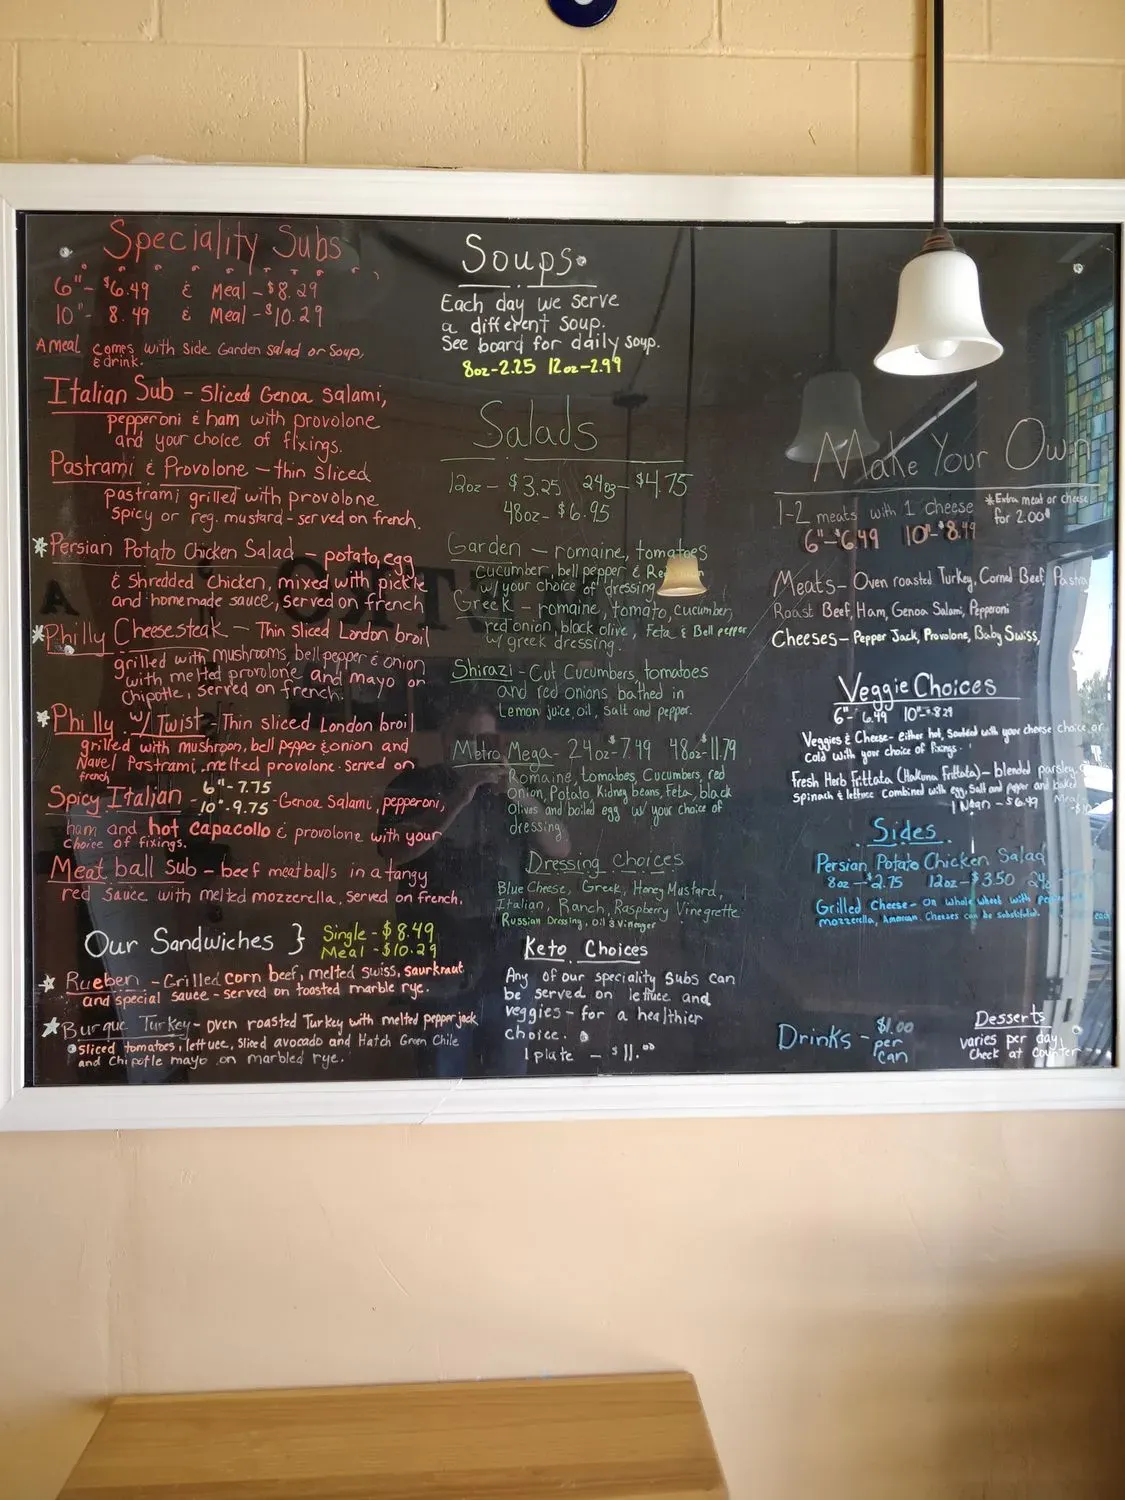 Speciality Subs
6" - $6.49 & Meal - $8.29
10" - 8.49 & Meal - $10.29
A meal comes with side Garden salad or Soup,
& drink.
Italian Sub - Sliced Genoa Salami,
pepperoni & ham with provolone
and your choice of fixings.
Pastrami & Provolone - thin sliced
pastrami grilled with provolone
spicy or reg. mustard - served on french.
*Persian Potato Chicken Salad - potato, egg
& shredded chicken, mixed with pickle
and homemade sauce, served on french
*Philly Cheesesteak - Thin Sliced London broil
grilled with mushrooms, bell pepper & onion
with melted provolone and mayo or
Chipotle, served on french.
*Philly w/ Twist - Thin sliced London broil
grilled with mushroom, bell pepper & onion and
Navel Pastrami, melted provolone. Served on
french
6" - 7.75
Spicy Italian - 10" - 9.75 - Genoa Salami, pepperoni,
ham and hot capacollo & provolone with your
choice of fixings.
Meat ball Sub - beef meatballs in a tangy
red sauce with melted mozzerella, Served on french.
Our Sandwiches } Single - $8.49
Meal - $10.29
*Rueben - Grilled corn beef, melted swiss, saurkraut
and special sauce - served on toasted marble rye.
*Burque Turkey - oven roasted Turkey with melted pepper jack
sliced tomatoes, lettuce, sliced avocado and Hatch Green Chile
and Chipotle mayo on marbled rye.
Soups
Each day we serve
a different soup.
See board for daily soup.
8oz - 2.25 12oz - 2.99
Salads
12oz - $3.25 24oz - $4.75
48oz - $6.95
Garden - romaine, tomatoes
cucumber, bell pepper & Re
w/ your choice of dressing
Greek - romaine, tomato, cucumber,
red onion, black olive, feta & Bell pepper
w/ greek dressing.
Shirazi - Cut Cucumbers, tomatoes
and red onions, bathed in
Lemon juice, oil, salt and pepper.
Metro Mega - 24oz - $7.49 48oz - 11.79
Romaine, tomatoes, Cucumbers, red
Onion, Potato, Kidney beans, Feta, black
Olives and boiled egg w/ your choice of
dressing
Dressing Choices
Blue Cheese, Greek, Honey Mustard,
Italian, Ranch, Raspberry Vinegrette
Russian Dressing, oil & vinegar
Keto Choices
Any of our speciality Subs can
be served on lettuce and
veggies - for a healthier
choice.
1 plate - $11.00
Make Your Own
1-2 meats with 1 cheese *Extra meat or cheese
for 2.00*
6" - $6.49 10" - $8.49
Meats - Oven roasted Turkey, Corned Beef, Pastra
Roast Beef, Ham, Genoa Salami, Pepperoni
Cheeses - Pepper Jack, Provolone, Baby Swiss,
Veggie Choices
6" - 6.49 10" - 8.29
Veggies & Cheese - either hot, Sauteed with your cheese choice or
Cold with your choice of fixings.
Fresh Herb Frittata (Hakuna Frittata) - blended parsley,
spinach & lettuce combined with egg, Salt and pepper and baked
1 Naan - $6.49
Sides
Persian Potato Chicken Salad
8oz - $2.75 12oz - $3.50
Grilled Cheese - on whole wheat with
mozzerella, American. Cheeses can be substituted. each
Drinks - $1.00
per
can
Desserts
varies per day
Check at counter